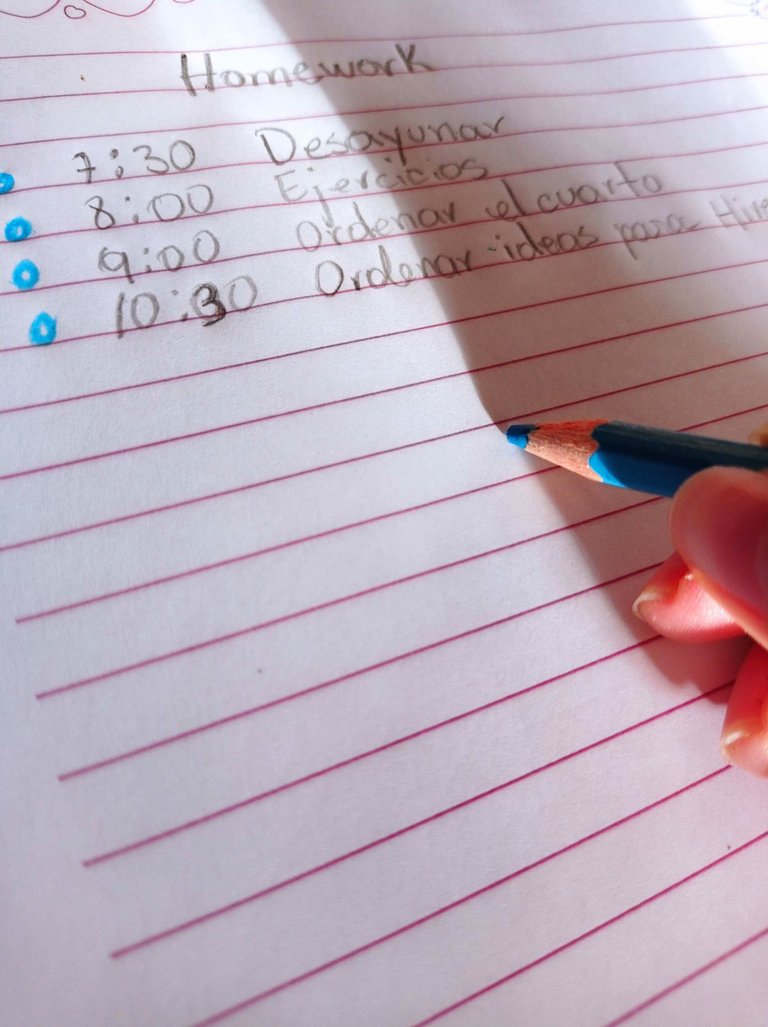 Homework
7:30 Desayunar
8:00 Ejercicios
9:00 Ordenar el cuarto
10:30 Ordenar ideas para